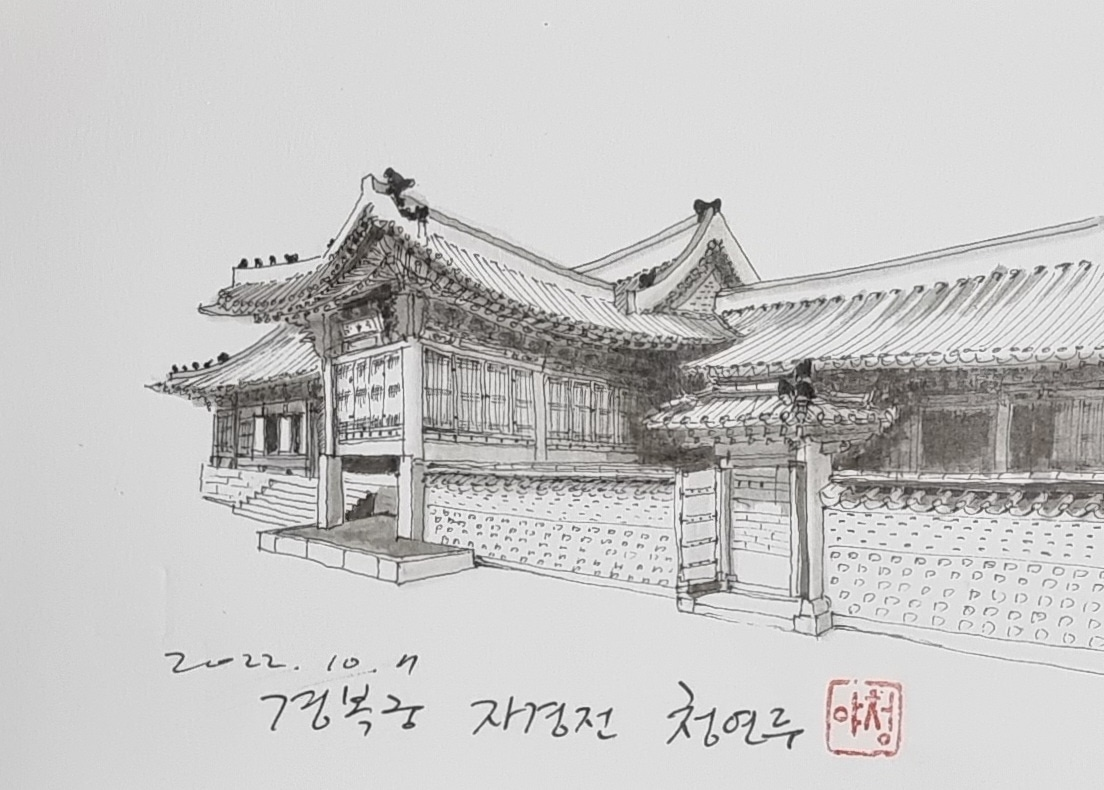 2022. 10.
경복궁 자경전 청연루 야청